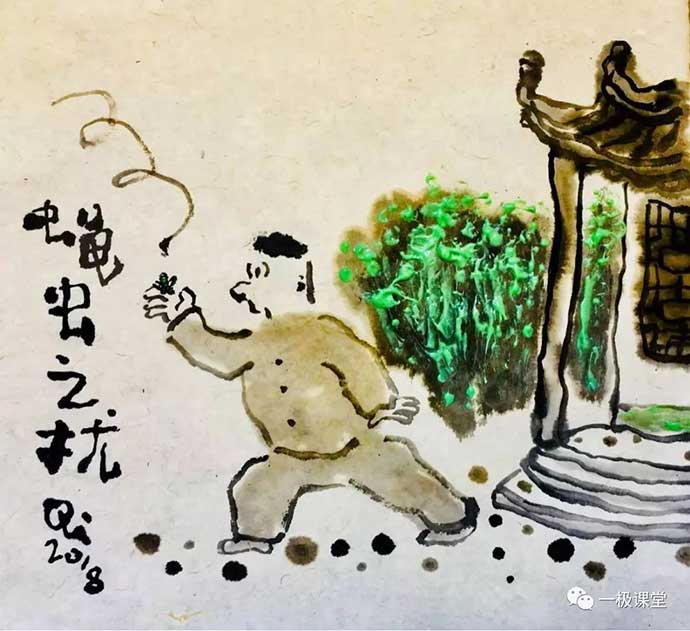 蝇虫之扰
Qi
2018
一极课堂